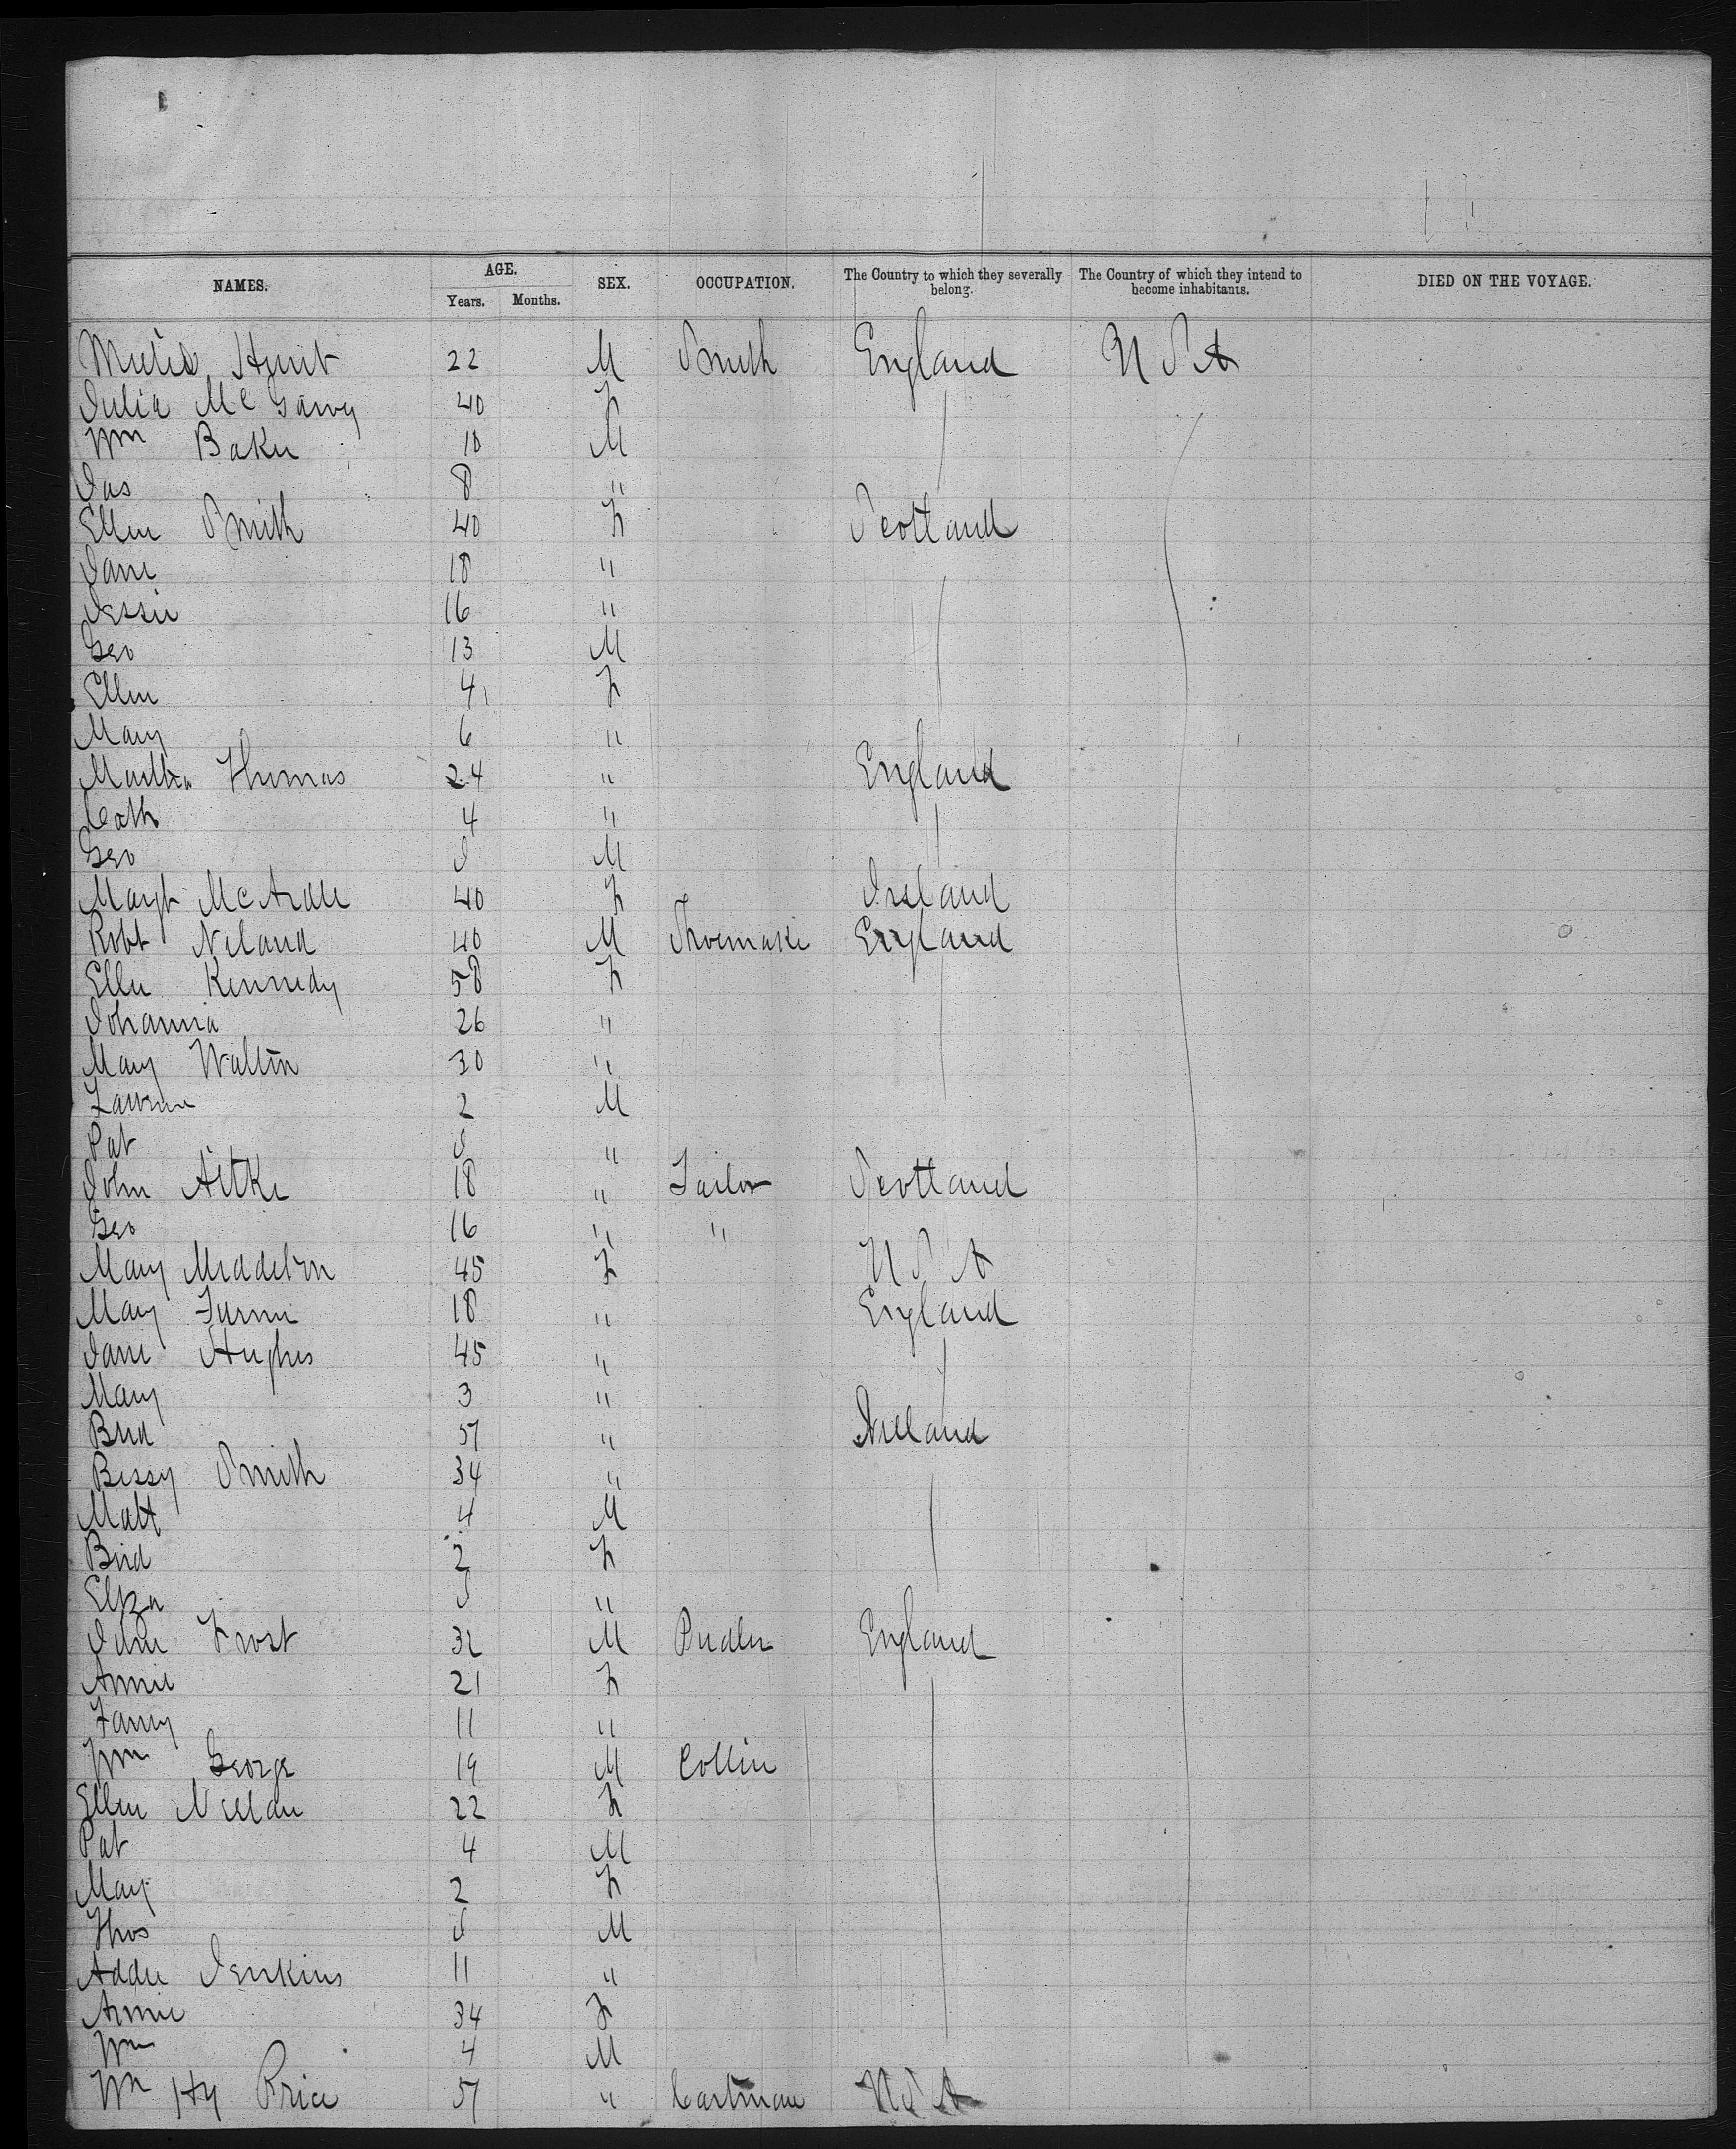 NAMES. AGE. SEX. OCCUPATION. The Country to which they severally belong. The Country of which they intend to become inhabitants. DIED ON THE VOYAGE.
Years. Months.
Hunt 22 M Smith England U S A
Julia McGarvy 40 F
Wm Baker 18 M
Jas 8 "
Ellen Smith 40 F Scotland
Jane 18 "
Jessie 16 "
Geo 13 M
Ellen 4 F
Mary 6 "
Martha Thomas 24 " England
Cath 4 "
Geo M
Margt McArdle 40 F Ireland
Robt Neland 40 M Shoemake England
Ellen Kennedy 58 F
Johanna 26 "
Mary Walton 30 "
Lawrence 2 M
Pat "
John Aitke 18 " Tailor Scotland
Geo 16 " "
Mary Middleton 45 F U S A
Mary 18 " England
Jane Hughes 45 "
Mary 3 "
Brid 57 " Ireland
Bessy Smith 34 "
Matt 4 M
Brid 2 F
Eliza "
Frost 32 M Pudler England
Annie 21 F
Fanny 11 "
Wm George 19 M Collier
Ellen 22 F
Pat 4 M
Mary 2 F
Thos M
Addie Jenkins 11 "
Annie 34 F
Wm 4 M
Wm Hy Price 57 " Cartman U S A